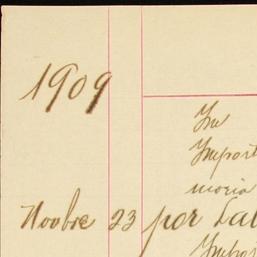 1909
Im
Import
moria
Novbre 23 por La
Impor